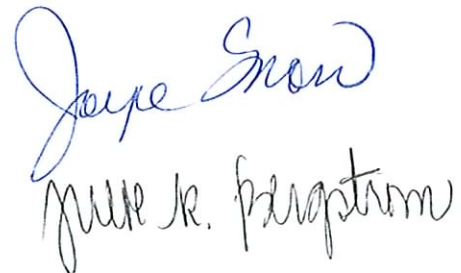 Joyce Snow
Julie K. Bergstrom